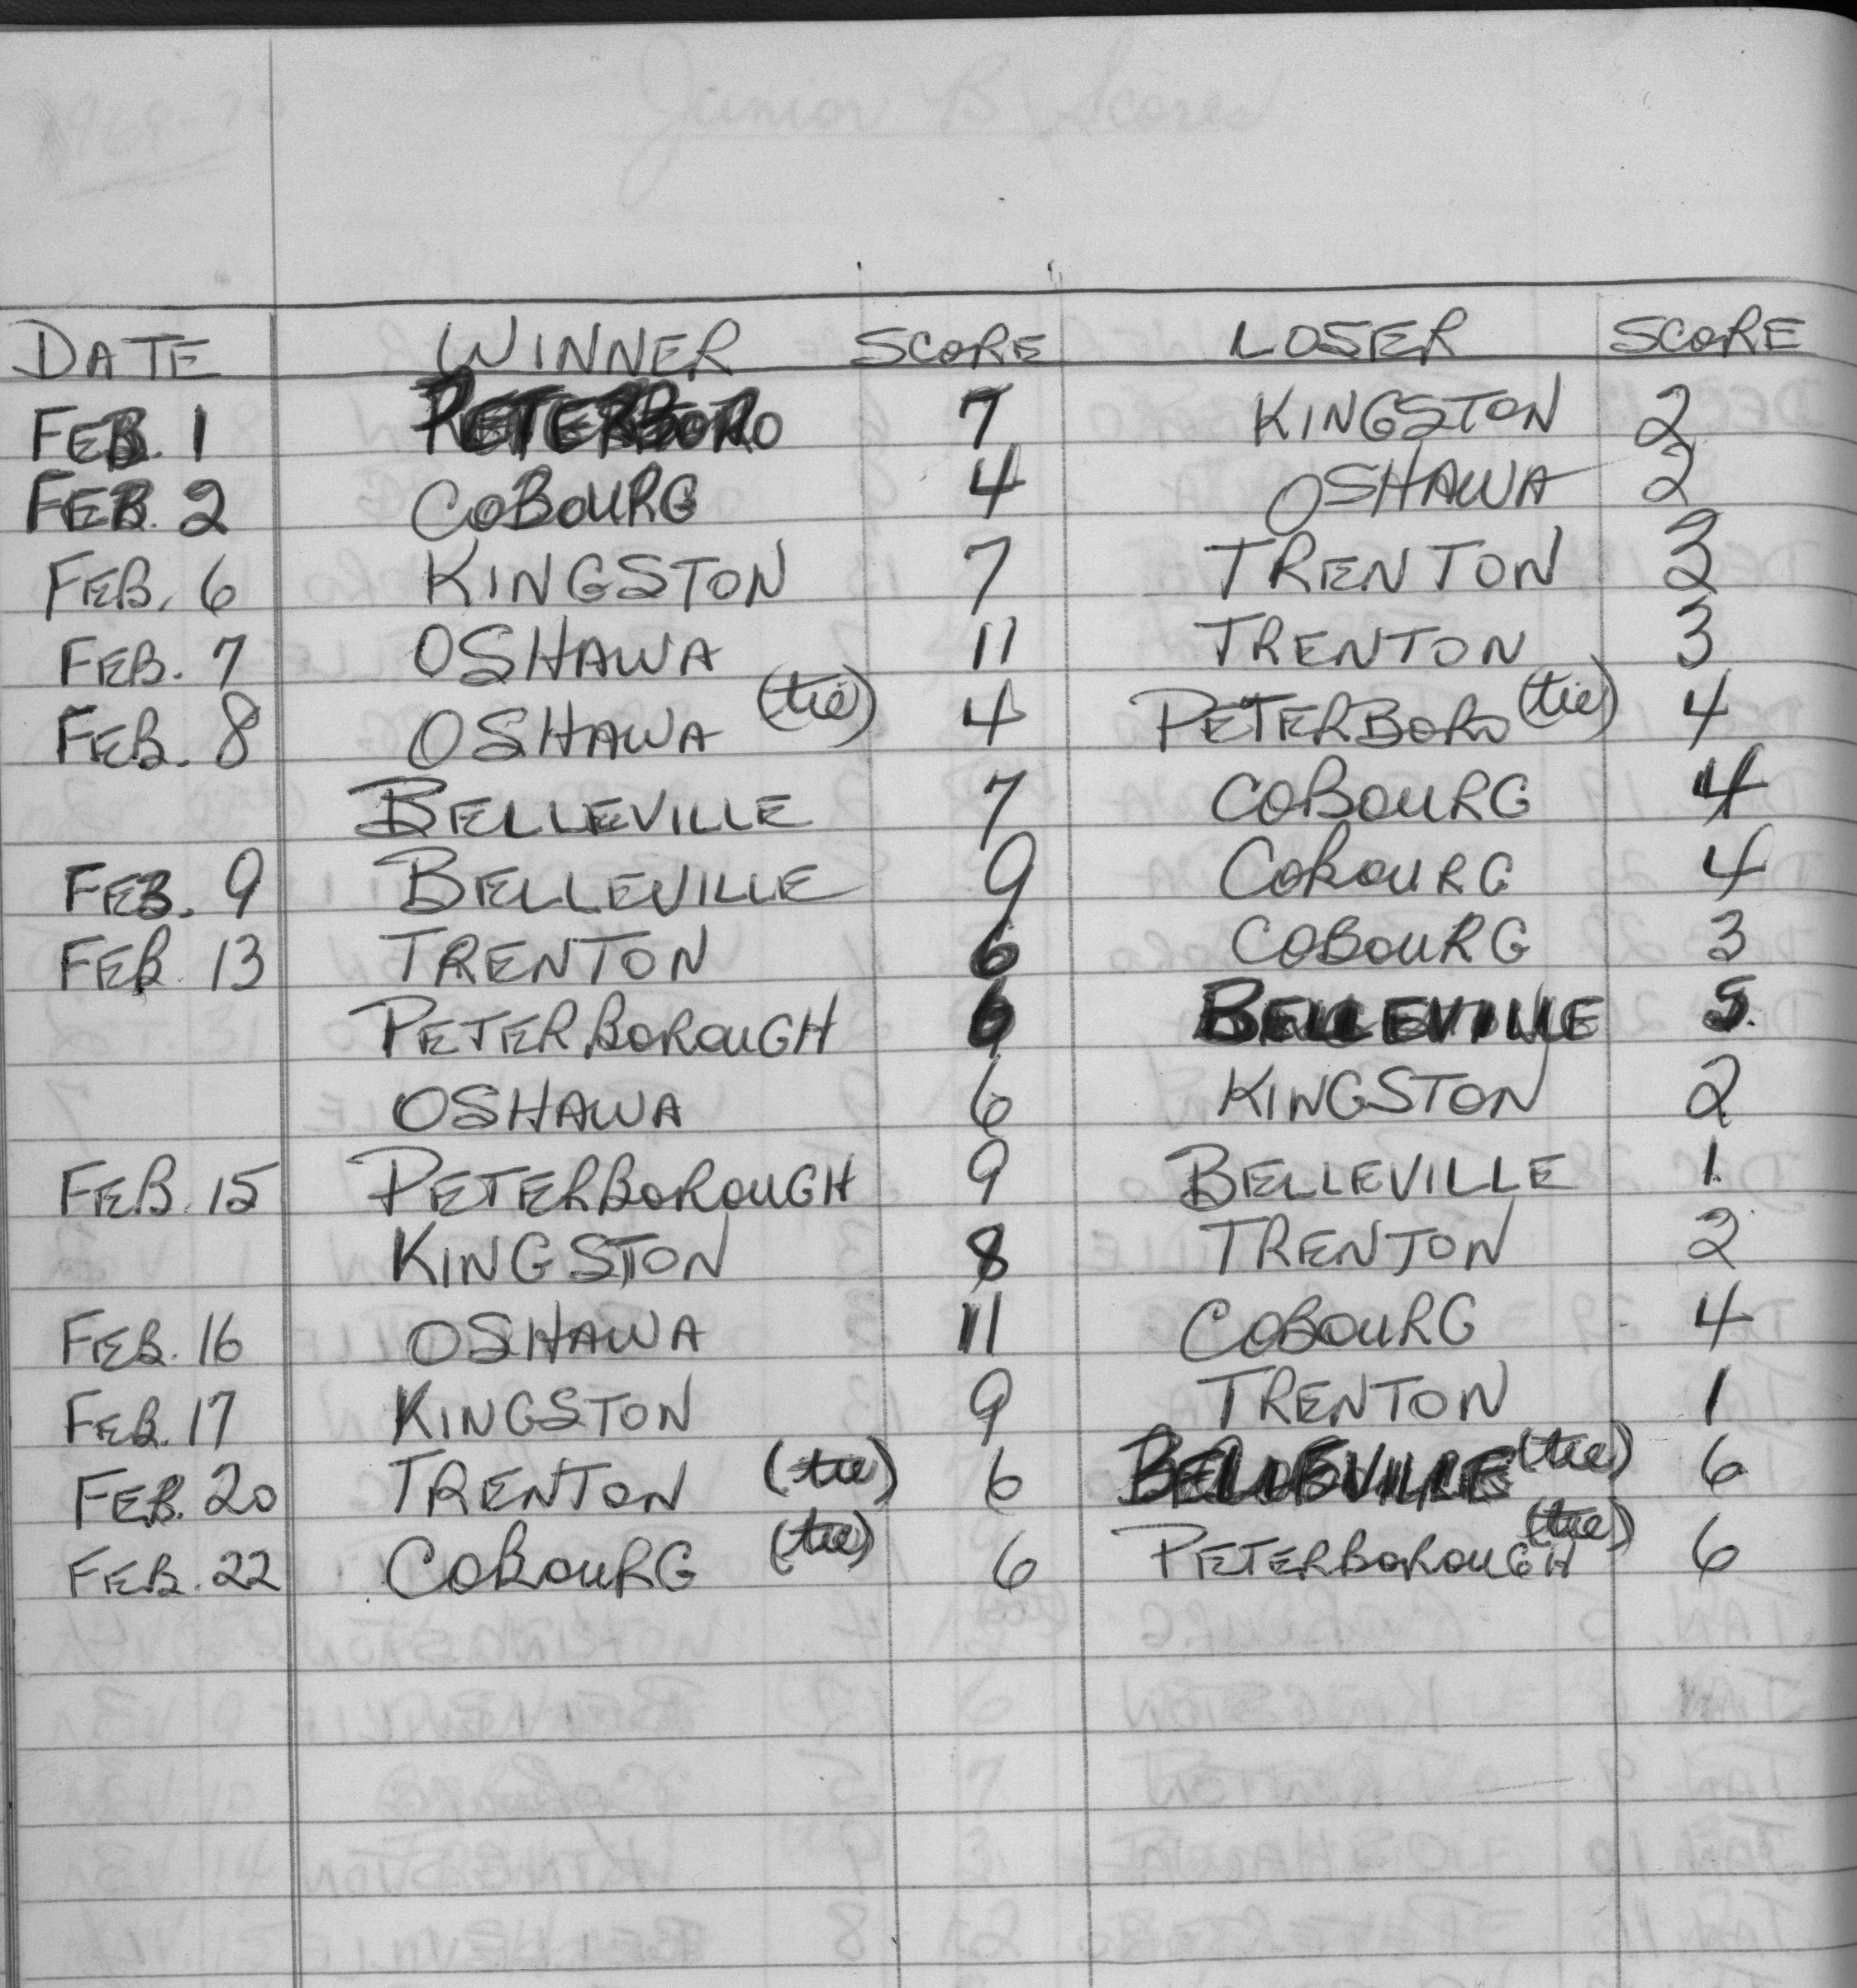 Junior B Scores
DATE WINNER SCORE LOSER SCORE
FEB. 1 PETERBORO 7 KINGSTON 2
FEB. 2 COBOURG 4 OSHAWA 2
FEB. 6 KINGSTON 7 TRENTON
FEB. 7 OSHAWA 11 TRENTON 3
FEB. 8 OSHAWA (tie) 4 PETERBORO (tie) 4
BELLEVILLE 7 COBOURG 4
FEB. 9 BELLEVILLE 9 COBOURG 4
FEB. 13 TRENTON 6 COBOURG 3
PETERBOROUGH 6 BELLEVILLE 5
OSHAWA 6 KINGSTON 2
FEB. 15 PETERBOROUGH 9 BELLEVILLE 1
KINGSTON 8 TRENTON 2
FEB. 16 OSHAWA 11 COBOURG 4
FEB. 17 KINGSTON 9 TRENTON 1
FEB. 20 TRENTON (tie) 6 BELLEVILLE (tie) 6
FEB. 22 COBOURG (tie) 6 PETERBOROUGH (tie) 6